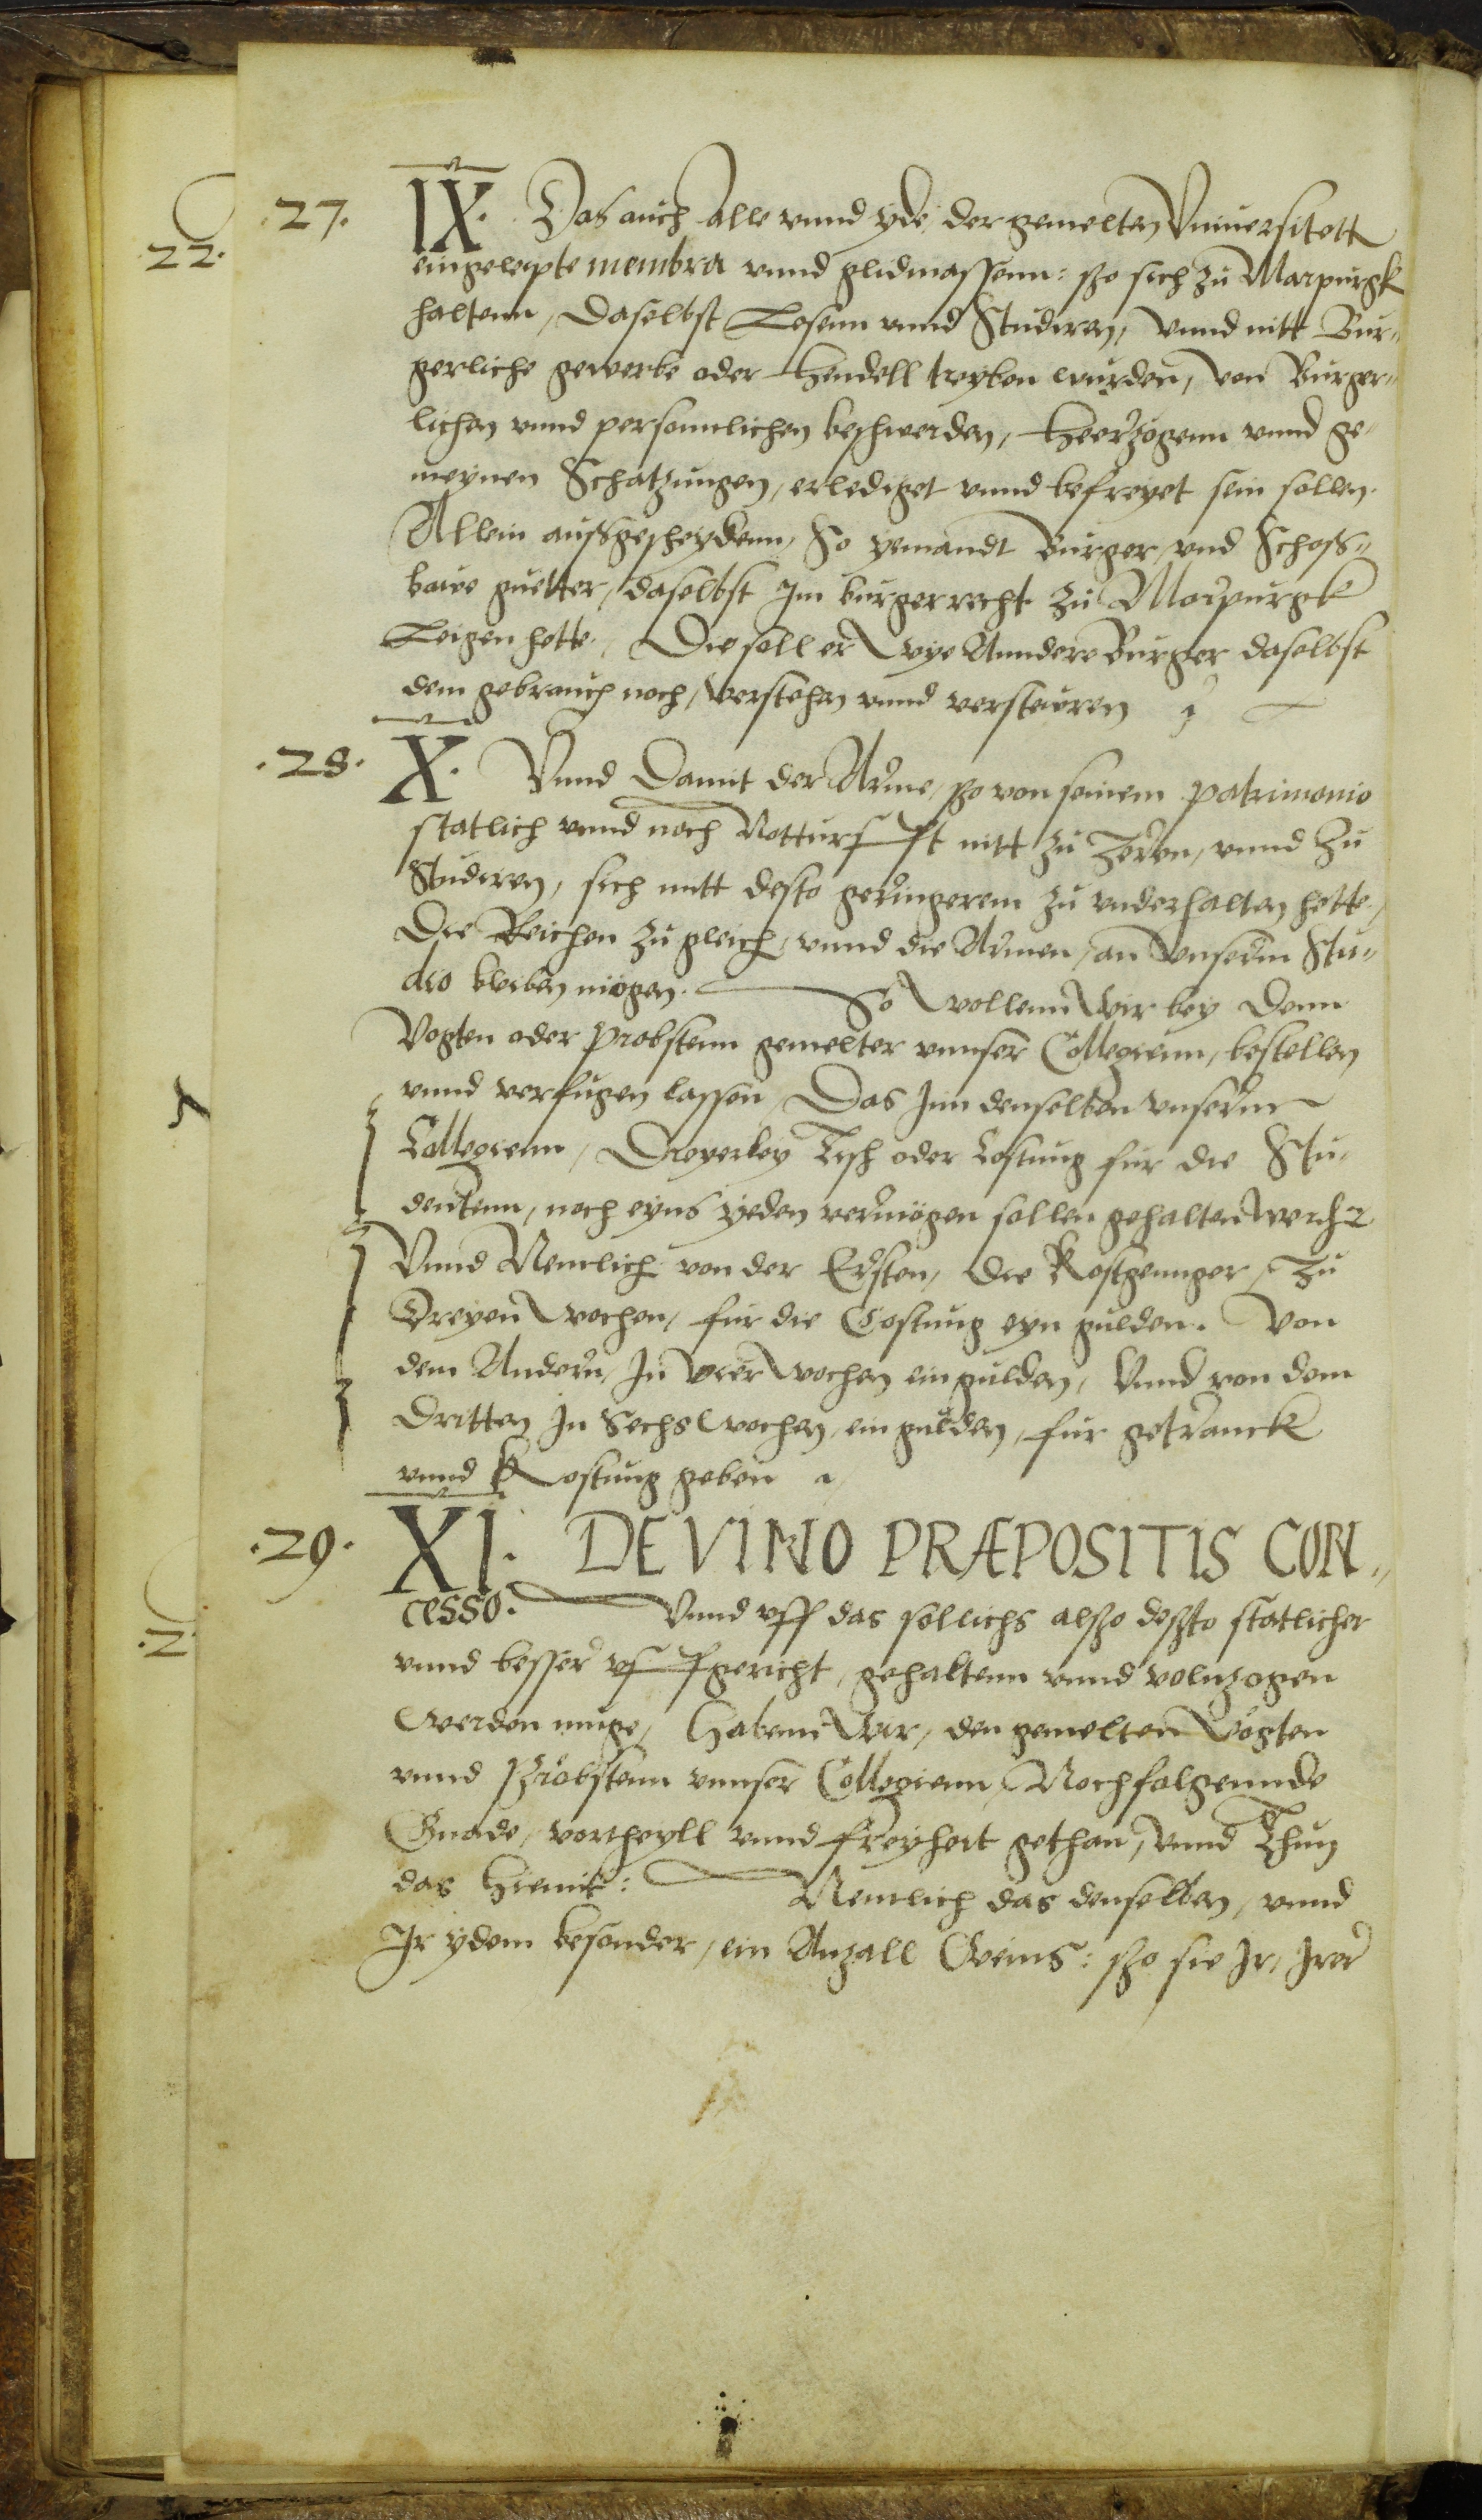 .27. IX. Das auch alle vnnd yde, der gemelten Vniuersitett
22.
eingeleipte membra vnnd glidmassenn: sso sich zu Marpurgk
haltenn, daselbst Lesenn vnnd Studiren, vnnd nitt Bur„
gerliche gewerbe oder Hendell treyben wurden, von Burger„
lichen vnnd personnlichen beschwerden, Heerzogenn vnnd ge„
meynen Schatzungen, erlediget vnnd befreyet sein sollen.
Allein außgescheydenn, So yemandt Burger, vnd Schoß„
bare guetter, daselbst Im burgerrecht zu Marpurgk
Leigen hette, Die soll er wye Anndere Burger daselbst
dem gebrauch noch, verstehen vnnd versteuren
.28. X. Vnnd Damit der Arme, sso von seinem patrimonio
statlich vnnd noch Notturfft nitt zu Zeren, vnnd Zu
Studiren, sich mitt desto geringerem zu vnderhalten hette,
Die Reichen zu gleich, vnnd die Armen, an vnserm Stu„
dio bleiben mögen. So wollenn wir bey denn
Vogten oder probstenn gemelter vnnser Collegienn, bestellen
vnnd verfugen lassen, Das Inn denselben vnsernn
Collegienn, Dreyerley Tisch oder Costung fur die Stu„
dentenn, noch eyns yeden vermögen sollen gehalten werden
Vnnd Nemlich von der Ersten, die Kostgennger, Zu
Dreyen wochen, fur die Costung eyn gulden. Von
dem Andern, In vier wochen ein gulden, Vnnd von dem
Dritten In Sechs wochen, ein gulden, fur getranck
vnnd Kostung geben
.29. XI. DE VINO PRÆPOSITIS CON„
cesso. Vnnd vff das sollichs alsso dessto statlicher
vnnd besser vffgericht, gehaltenn vnnd volnzogen
werden muge, Habenn wir, den gemelten Vögten
vnnd Probstenn vnnser Collegienn, Nochfolgennde
Gnade, vortheyll vnnd freyheit gethan, vnnd Thun
das Hiemit: Nemlich das denselben, vnnd
Ir ydem besonder, ein Anzall Weins: sso sie Ir, Irer